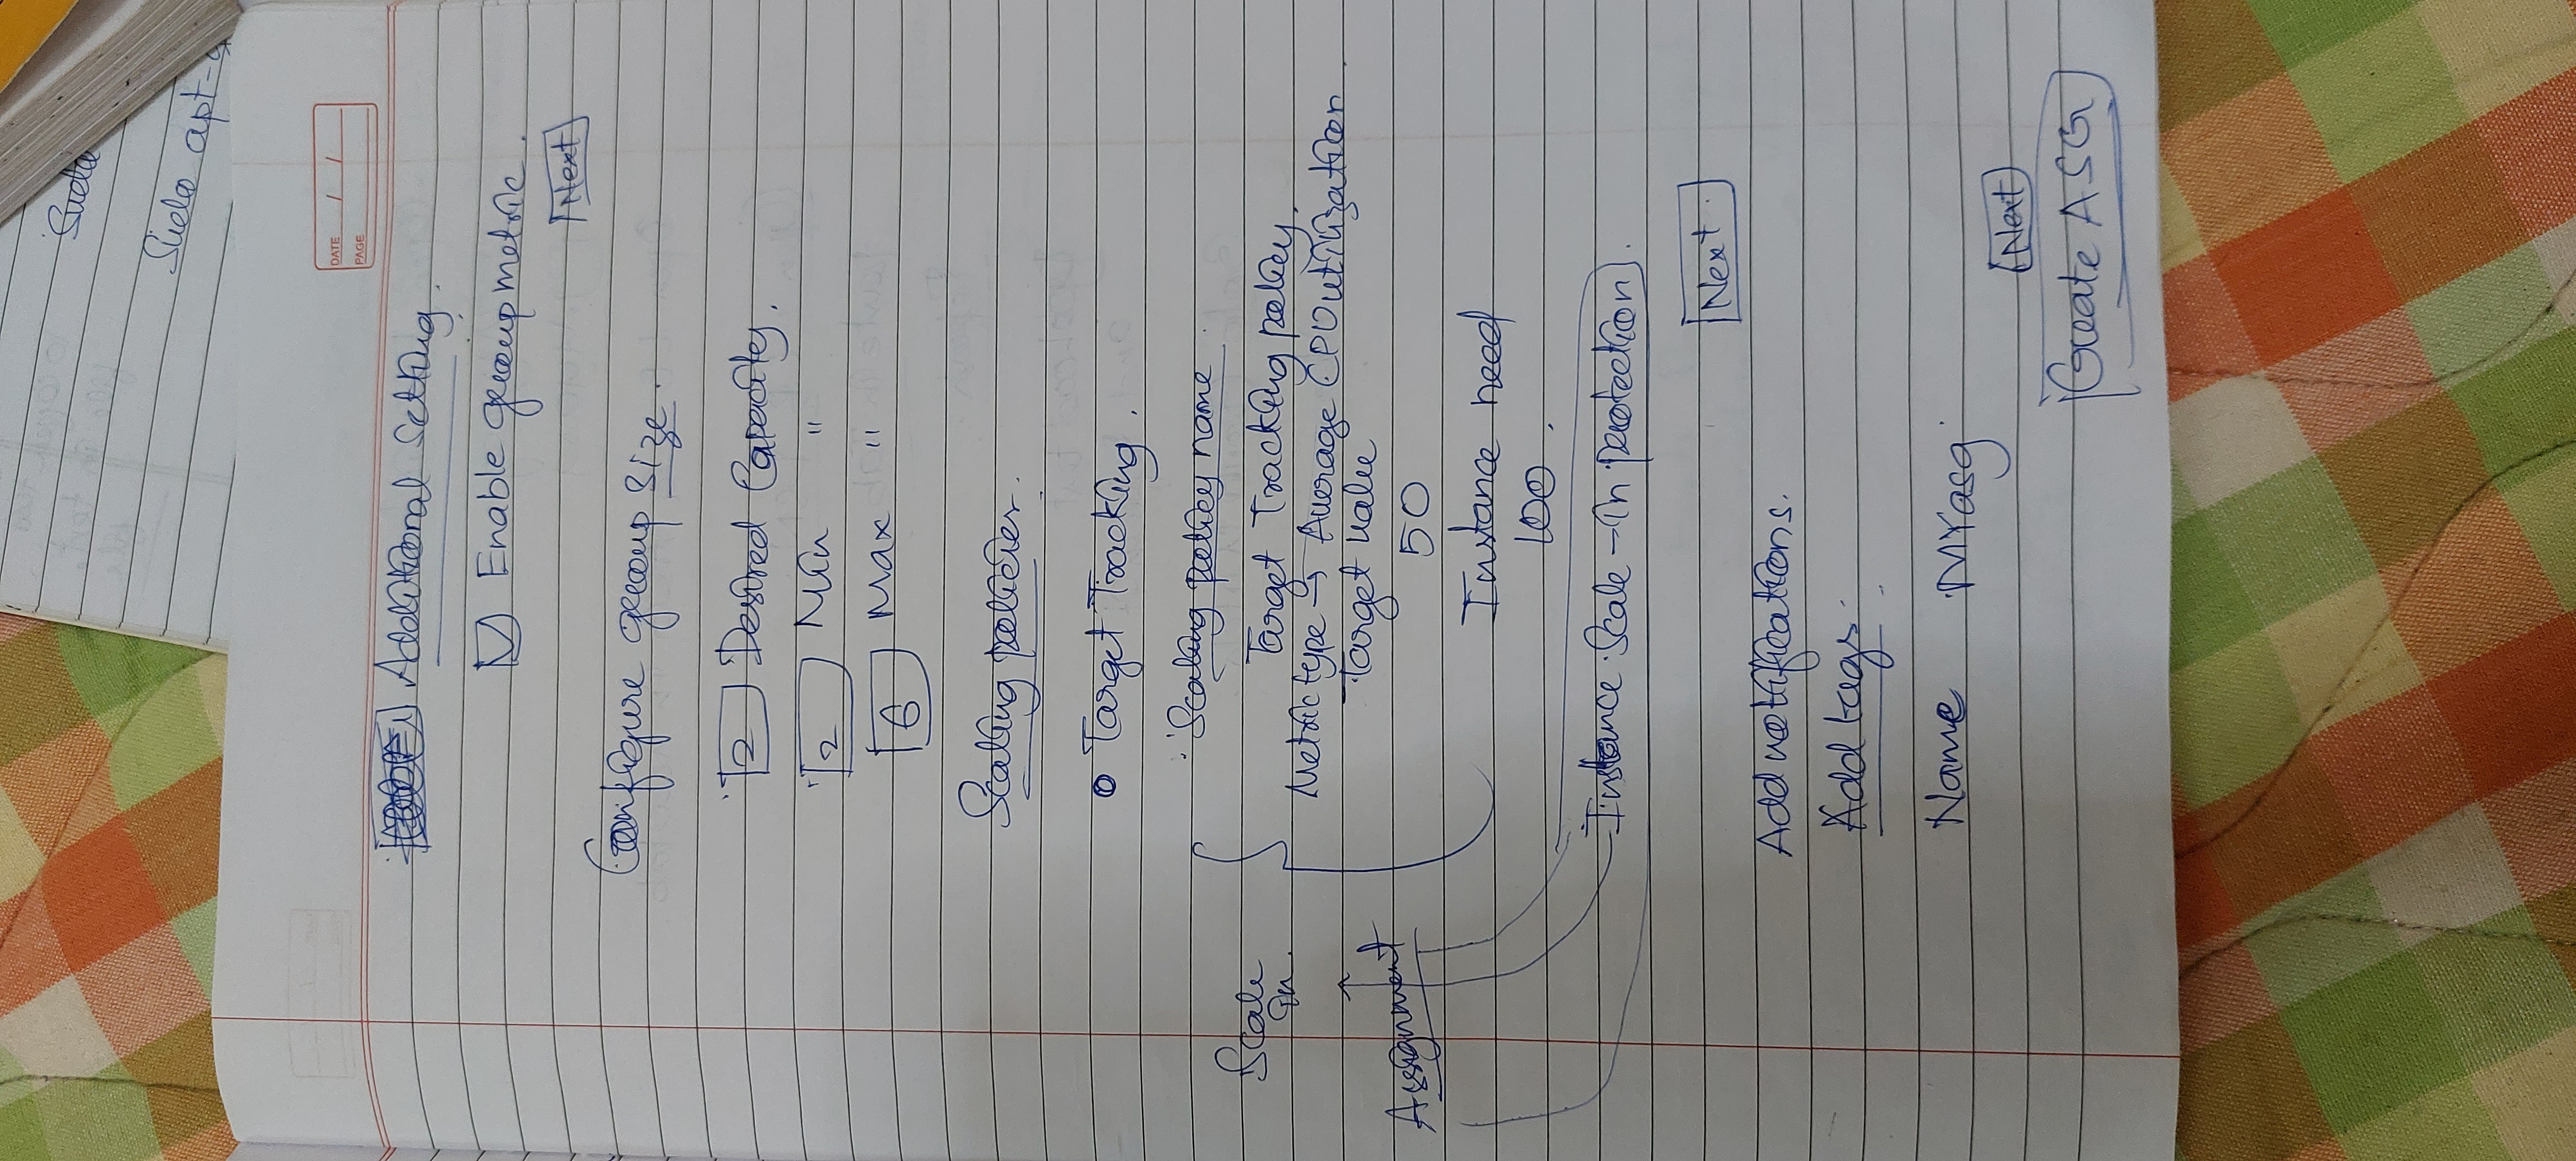 Sudo
Sudo apt-g
DATE / /
PAGE
Additional Setting.
Enable group metric.
Next
Configure group size.
2 Desired Capacity.
2 Min "
6 Max "
Scaling policies.
Target Tracking.
Scaling policy name
Scale
in.
Target Tracking policy.
Metric type → Average CPU utilization
Target value
Assignment
50
Instance need
100.
Instance Scale-in protection.
Next.
Add notifications.
Add tags.
Name MYasg
Next
Create ASG